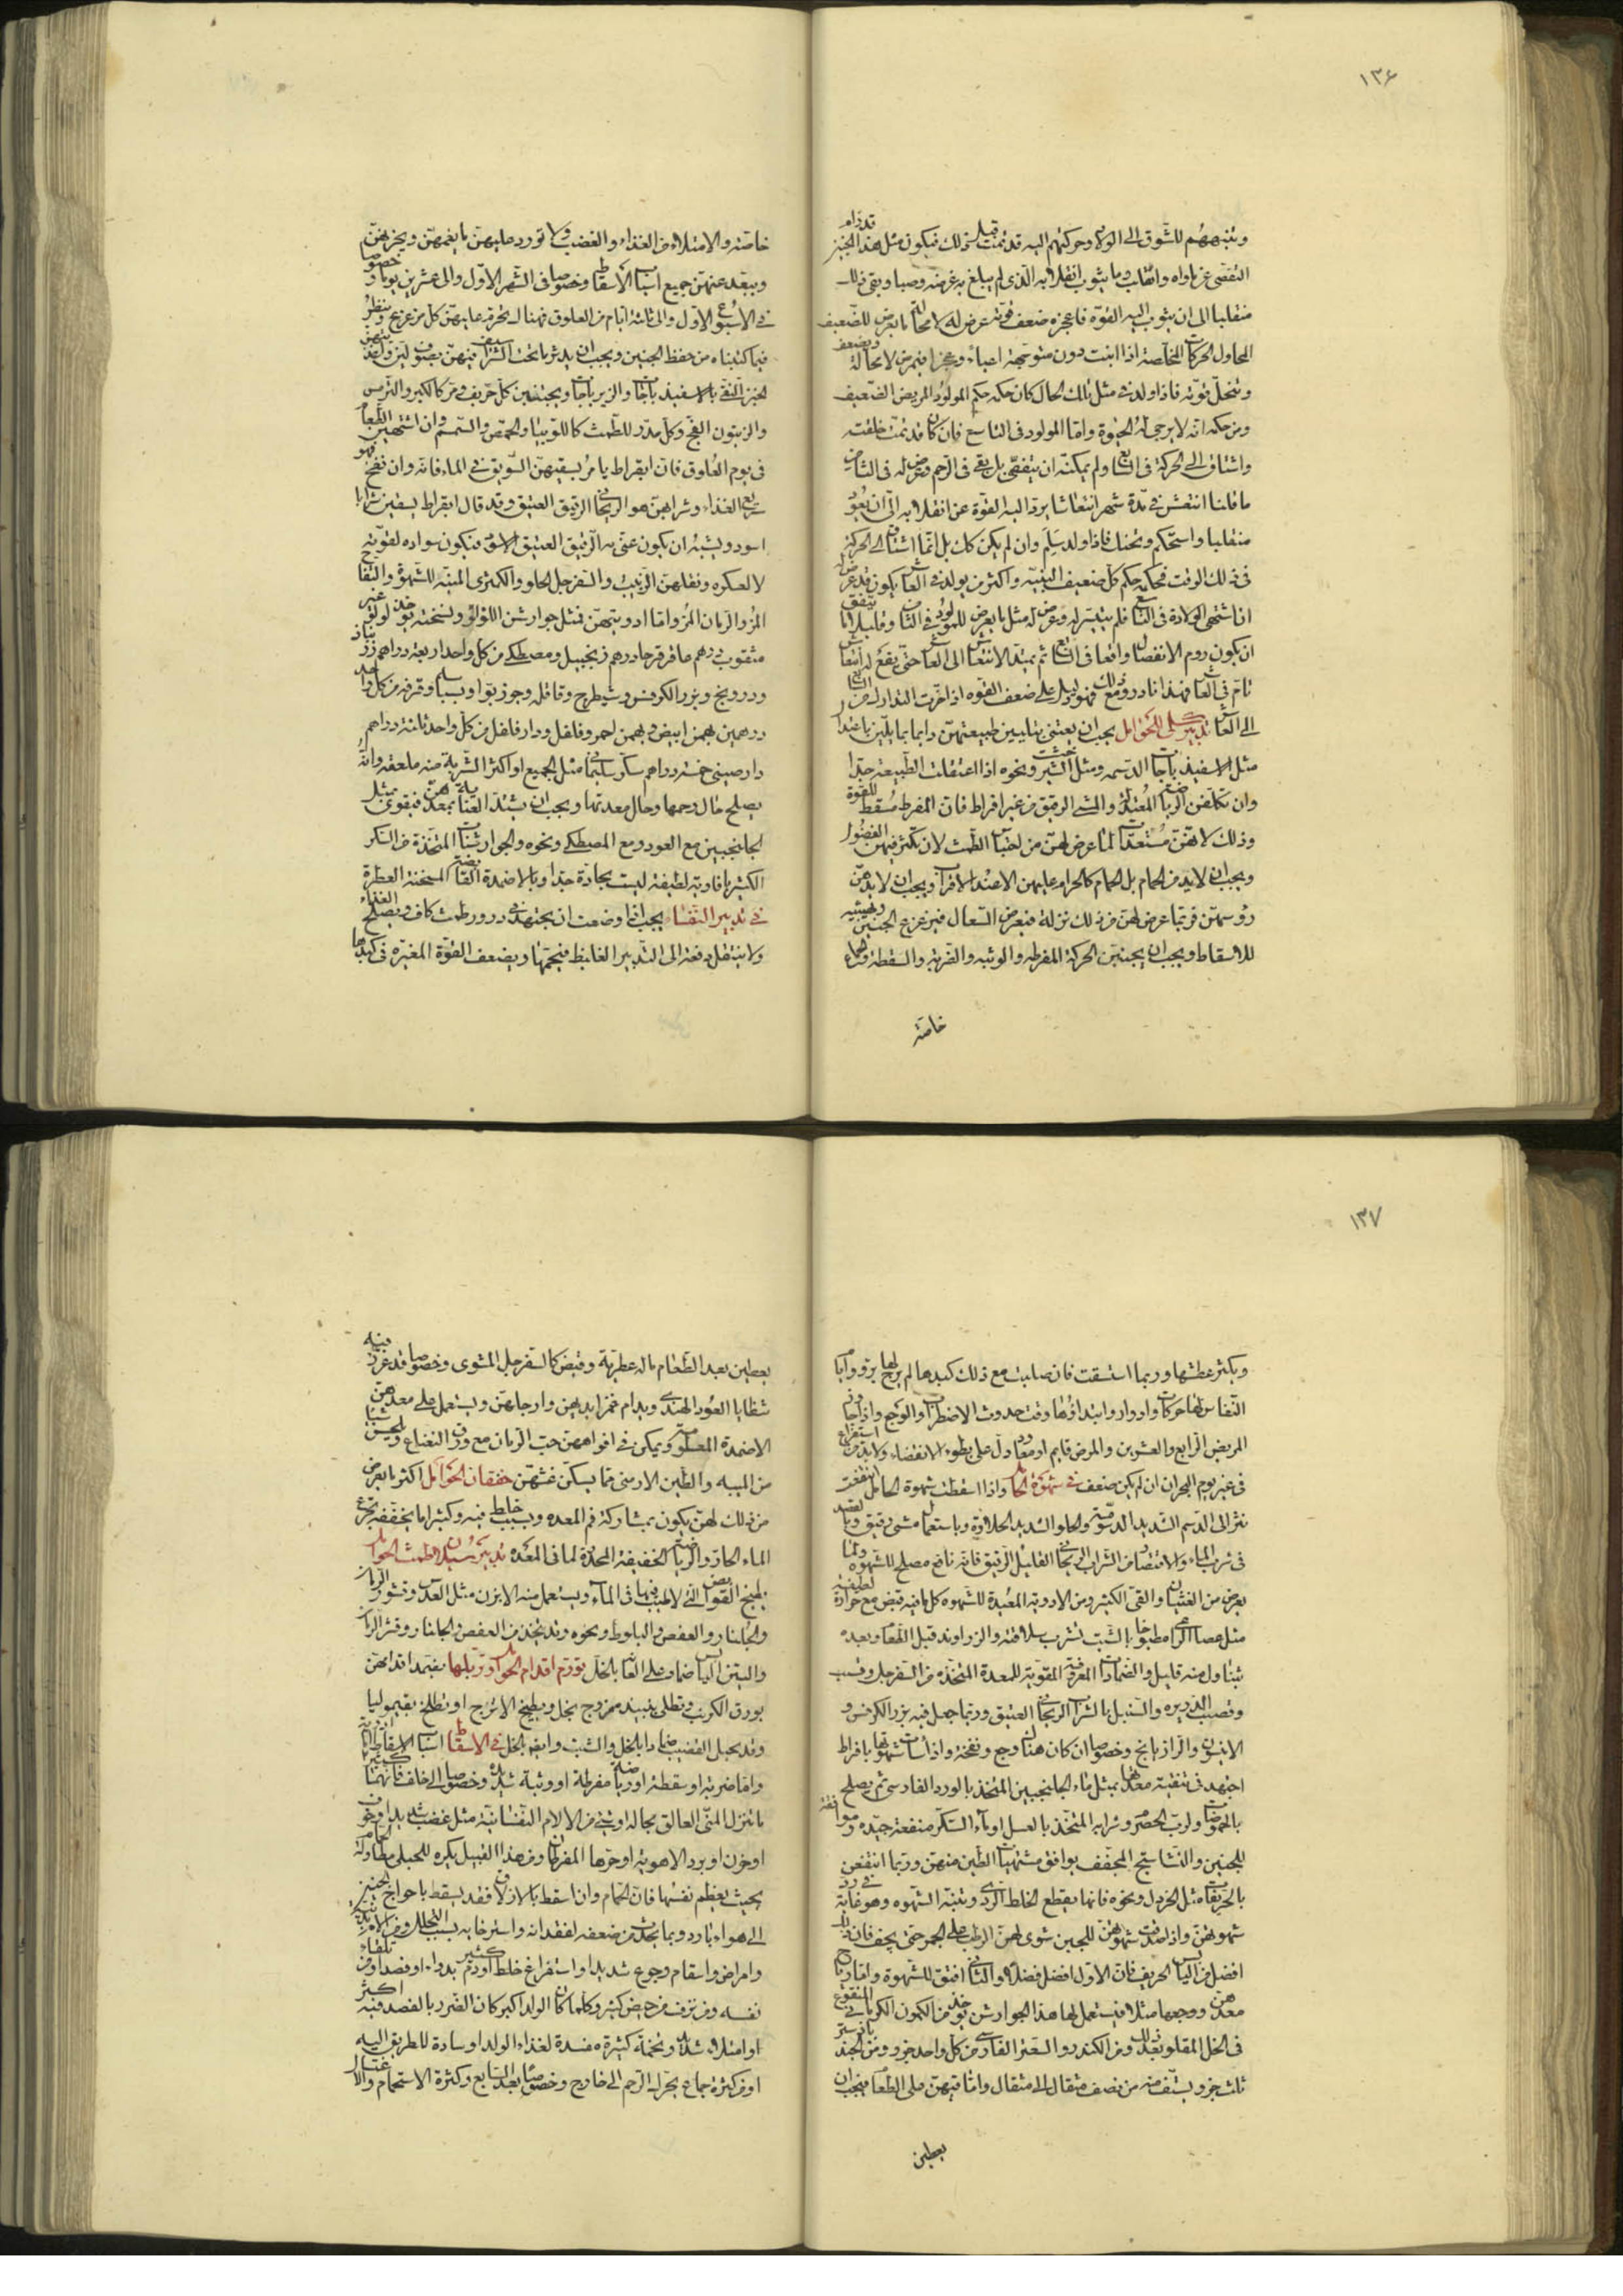 ١٣٦
وتنبههم للشوق الى الولاد وحركتهم اليه قد تمت قبل ذلك فيكون مثل هذا الجنين قد رام
التفصى عن ماواه وانقلب وما يثوب انقلابه الذى لم يبلغ به غرضه وصبا وبقى ذلك
منقلبا الى ان يثوب اليه القوة فاعجزه ضعف قوته عرض له لا محالة ما يعرض للضعيف
المحاول لحركات المخلصة اذا انبت دون متوجهه اعياء وعجزا فيمرض لا محالة ويضعف
وتنحل قوته فاذا ولد فى مثل تلك الحال كان حكمه حكم المولود المريض الضعيف
ومن حكمه انه لا يرجى له الحيوة واما المولود فى التاسع فان كان قد تمت خلقته
واشتاق الى الحركة فى السابع ولم يمكنه ان يتفصى بل بقى فى الرحم وعرض له فى الثامن
ما قلنا انتعش فى مدة شهر انتعاشا يرد اليه القوة عن انقلابه الى ان يعود
منقلبا واستحكم وتحنك فاذا ولد سلم وان لم يكن كذلك بل انما اشتاق الى الحركة
فى ذلك الوقت فحكمه حكم كل ضعيف البنية واكثر من يولد فى العاشر يكون قد عرض له
ان اشتهى الولادة فى التاسع فلم يتيسر له وعرض له مثل ما يعرض للمولود فى الثامن وقليلا ما يتفق
ان يكون روم الانفصال واقعا فى السابع ثم يمتد الانتعاش الى العاشر حتى يقع له انتعاش
تام فى العاشر فهذا نادر ومع ذلك فهو دليل على ضعف القوة اذا اخرت التدارك من السابع
الى العاشر تدبير كلى للحوامل يجب ان يعتنى بتليين طبيعتهن دائما بما يلين باعتدال
مثل الاسفيذباجات الدسمه ومثل الشيرخشت ونحوه اذا اعتقلت الطبيعة جدا
وان تكلفن الرياضة المعتدلة والمشى الرفيق من غير افراط فان المفرط مسقط للقوة
وذلك لانهن مستعدات لما عرض لهن من احتباس الطمث لان تكثر فيهن الفضول
ويجب ان لا يدمن الحمام بل الحمام كالحرام عليهن الا عند الاقراب ويجب ان لا يدهن
رؤسهن فربما عرض لهن من ذلك نزلة فيعرض السعال فيزعزع الجنين ويهيئه
للاسقاط ويجب ان يجتنبن الحركة المفرطه والوثبه والضربه والسقطه والجماع
خاصة
خاصة والامتلاء من الغذاء والغضب ولا تورد عليهن ما يغمهن ويحزنهن
ويبعد عنهن جميع اسباب الاسقاط وخصوصا فى الشهر الاول والى عشرين يوما وخصوصا
فى الاسبوع الاول والى ثلثة ايام من العلوق فهناك يحرم عليهن كل مزعزع وينظر
فيما كتبناه من حفظ الجنين ويجب ان يدثر ما تحت الشراسيف منهن بصوف لين واغذيتهن
الخبز النقى بالاسفيذباجات والزيرباجات ويجتنبن كل حريف ومر كالكبر والترمس
والزيتون الفج وكل مدر للطمث كاللوبيا والحمص والسمسم وان اشتهين الطعام
فى يوم العلوق فان ابقراط يامر بسقيهن السويق فى الماء فانه وان نفخ فهو
سريع الغذاء وشرابهن هو الريحانى الرقيق العتيق وقد قال ابقراط يسقين شرابا
اسود ويشبه ان يكون عنى به الرقيق العتيق الاسود فيكون سواده لقوته
لا لعكره ونقلهن الزبيب والسفرجل الحلو والكمثرى المنبه للشهوة والتفاح
المز والرمان المز واما ادويتهن فمثل جوارشن اللؤلؤ ونسخته يؤخذ لؤلؤ غير
مثقوب درهم عاقرقرحا درهم زنجبيل ومصطكى من كل واحد اربعة دراهم زرنباد
ودرونج وبزر الكرفس وشيطرج وقاقله وجوز بوا وبسباسه وقرفه من كل واحد
درهمين بهمن ابيض وبهمن احمر وفلفل ودار فلفل من كل واحد ثلثة دراهم
دارصينى خمسة دراهم سكر سليمانى مثل الجميع او اكثر الشربة منه ملعقه وانه
يصلح حال رحمها وحال معدتها ويجب ان يشتد العناية بمعدهن فيقوى بمثل
الجلنجبين مع العود ومع المصطكى ونحوه والجوارشنات المتخذة من السكر
الكثير بافاويه لطيفة ليست بحادة جدا وبالاضمدة القابضة المسخنة العطرة
فى تدبير النفساء يجب اذا وضعت ان يجتهد فى درور طمث كاف ويصلح الغذاء
ولا ينتقل دفعة الى التدبير الغليظ فيحمها ويضعف القوة المغيرة فى كبدها
١٣٧
ويكثر عطشها وربما استسقت فان صلبت مع ذلك كبدها لم يرج لها برؤ وآبا
النفاس لها حركات وادوار وابتداؤها وقت حدوث الاضطراب والوجع واذا جاوز
المريض الرابع والعشرين والمرض قايم او معاود دل على بطوء الانقضاء ولا بد من استفراغ
فى غير يوم البحران ان لم يكن ضعف فى شهوة الحامل واذا سقطت شهوة الحامل انتفعت
بترك الدسم الشديد الدسومة والحلو الشديد الحلاوة وباستعمال مشى رفيق وبالقصد
فى شرب الماء والاقتصار من الشراب الريحانى القليل الرقيق فانه نافع مصلح للشهوة ولما
يعرض من الغثيان والقئ الكثير ومن الادوية المعيدة للشهوه كل ما فيه قبض مع حرارة لطيفة
مثل عصا الراعى مطبوخا بالشبت يشرب سلاقته والزراوند قبل الطعام وبعده
يتناول منه قليل والضمادات المعروفة المقوية للمعدة المتخذة من السفرجل وقسب
وقصب الذريره والسنبل بالشراب الريحانى العتيق وربما جعل فيه بزر الكرفس و
الانيسون والرازيانج وخصوصا ان كان هناك وجع ونفخة واذا ساءت شهوتها بافراط
اجتهد فى تنقية معدتها بمثل ماء الجلنجبين المتخذ بالورد الفارسى ثم يصلح
بالحموضات ولرب الحصرم وشرابه المتخذ بالعسل او ماء السكر منفعة جيده وموافقة
للجنين والنشاستج المجفف يوافق مشتهيات الطين منهن وربما انتفعن
بالحريفات مثل الخردل ونحوه فانها يقطع الخلط الردى وتنبه الشهوه وهو غاية فى رد
شهوتهن واذا صدقت شهوتهن للجبن شوى لهن الرطب على الجمر حتى يجف فان ذلك
افضل من اليابس الحريف فان الاول افضل فضلا والثانى افتق للشهوة واما رياح
معدهن ووجعها مثلا فيستعمل لها هذا الجوارشن يؤخذ من الكمون الكرمانى المنقوع
فى الخل المقلو بعد ذلك ومن الكندر والسعتر الفارسى من كل واحد جزو ومن الجندبادستر
ثلث جزو يستف منه من نصف مثقال الى مثقال واما قيئهن على الطعام فيجب ان
يعطين
يعطين بعد الطعام ما له عطرية وقبض كالسفرجل المشوى وخصوصا قد غرز فيه
شظايا العود الهندى ويدام غمز ايديهن وارجلهن ويستعمل على معدهن
الاضمدة المعلومة ويمكن فى افواههن حب الرمان مع ورق النعناع ويلحسن شيئا
من الميبه والطين الارمنى مما يسكن غثيهن خفقان الحوامل اكثر ما يعرض
من ذلك لهن يكون بمشاركة فم المعده وبسبب خلط فيه وكثيرا ما يخففه تجرع
الماء الحار والرياضة الخفيفة المحدرة لما فى المعده تدبير سيلان طمث الحوامل
يطبخ القوابض التى لا طيب فيها فى الماء ويستعمل منه الابزن مثل العدس وقشور الرمان
والجلنار والعفص والبلوط ونحوه وقد يتخذ من العفص والجلنار وقشر الرمان
والتين اليابس ضماد على العانة بالخل تورم اقدام الحوامل وترهلها يضمد اقدامهن
بورق الكرنب وتطلى بنبيذ ممزوج بخل وبطبيخ الاترج او تطلى بقيموليا
وقد يحبل القضيب ضمادا بالخل والشبت وايضا بالخل فى الاسقاط اسباب الاسقاط اما بادية
واما ضربه او سقطة او رياضة مفرطة او وثبة شديدة وخصوصا الى خلف فانها كثيرا
ما تنزل المنى العالق بحاله او شئ من الالام النفسانية مثل غضب شديد او خوف
او حزن او برد الاهويه او حرها المفرطان ومن هذا القبيل يكره للحبلى مطاولة الحمام
بحيث يعظم نفسها فان الحمام وان اسقط بالازلاق فقد يسقط باحواج الجنين
الى هواء بارد وبما يحدث من ضعفه لفقدانه واسترخايه بسبب التحلل ومن الامراض بدنية
وامراض واسقام وجوع شديد او استفراغ خلط او دم كثير بدواء او فصد او من تلقاء
نفسه ومن نزف من حيض كثير وكلما كان الولد اكبر كان الضرر بالفصد فيه اكثر
او امتلاء شديد وتخمة كثيرة مفسدة لغذاء الولد او سادة للطريق اليه
او من كثرة جماع يحرك الرحم الى خارج وخصوصا بعد السابع وكثرة الاستحمام والاغتسال